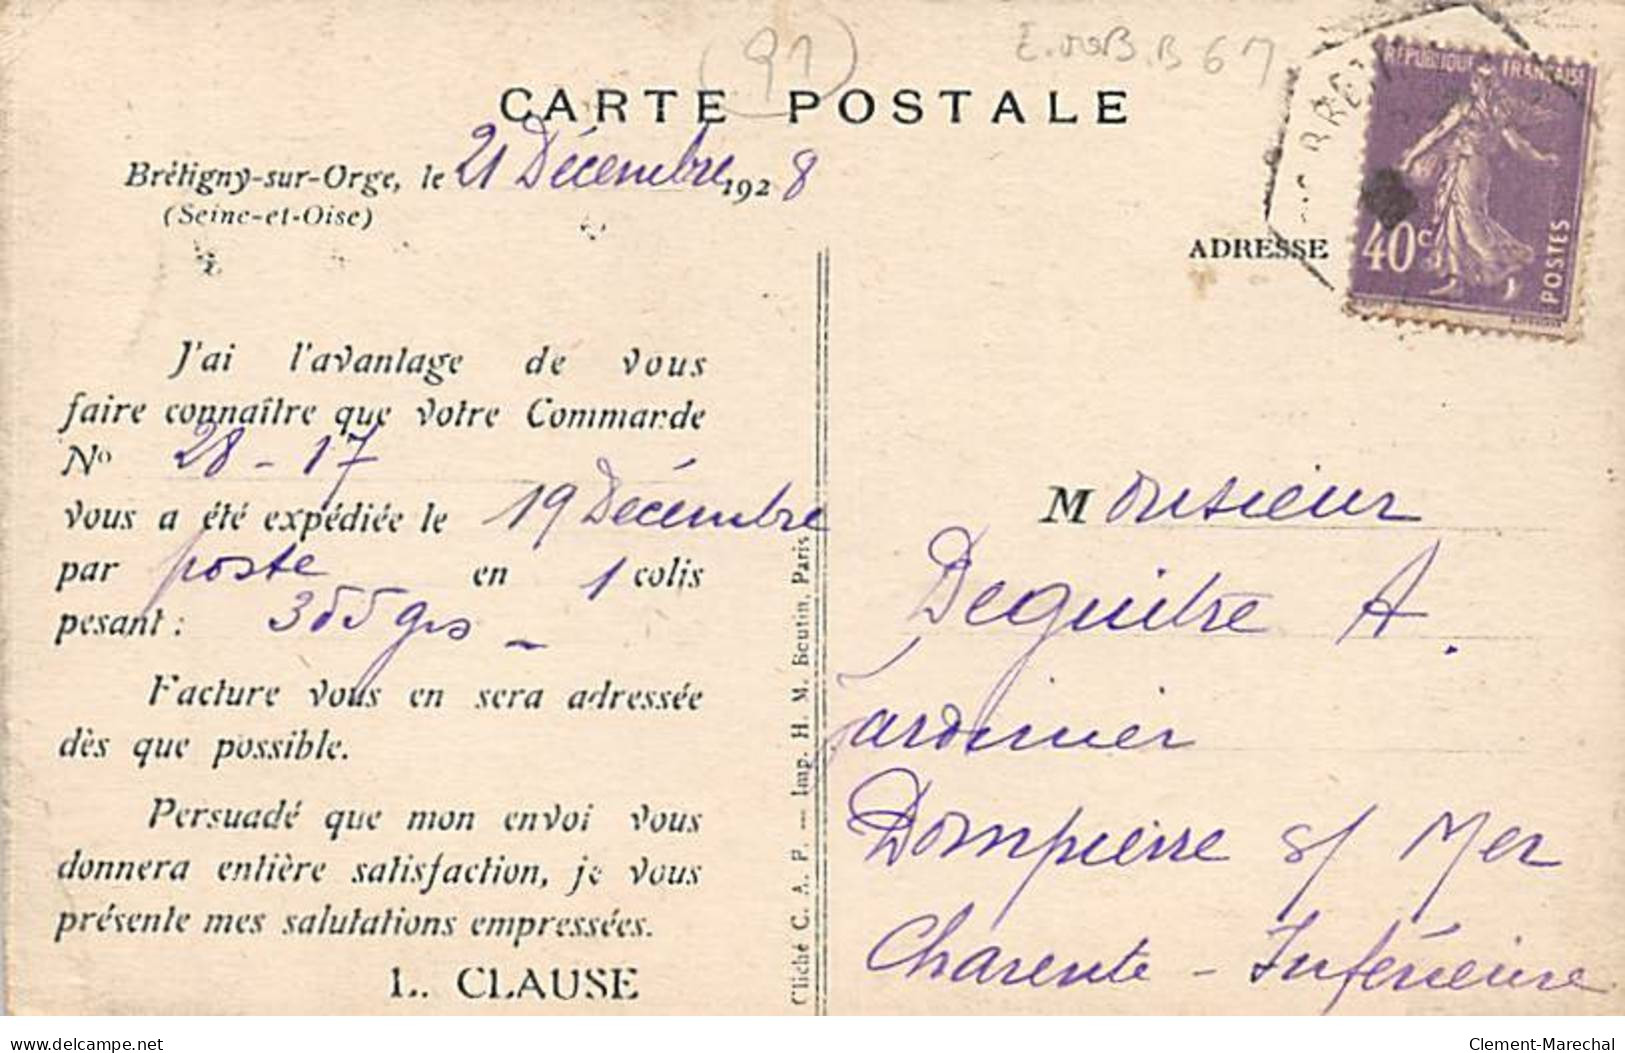 (91)
CARTE POSTALE
Brétigny-sur-Orge, le 21 Décembre 1928
(Seine-et-Oise)
J'ai l'avantage de vous
faire connaître que votre Commande
No 28-17
vous a été expédiée le 19 Décembre
par poste en 1 colis
pesant : 355 grs -
Facture vous en sera adressée
dès que possible.
Persuadé que mon envoi vous
donnera entière satisfaction, je vous
présente mes salutations empressées.
L. CLAUSE
Cliché C. A. P. — Imp. H. M. Boutin, Paris
REPUBLIQUE FRANÇAISE
40c
POSTES
ADRESSE
Monsieur
Deguitre A.
jardinier
Dompierre s/ Mer
Charente-Inférieure
www.delcampe.net
Clement-Marechal